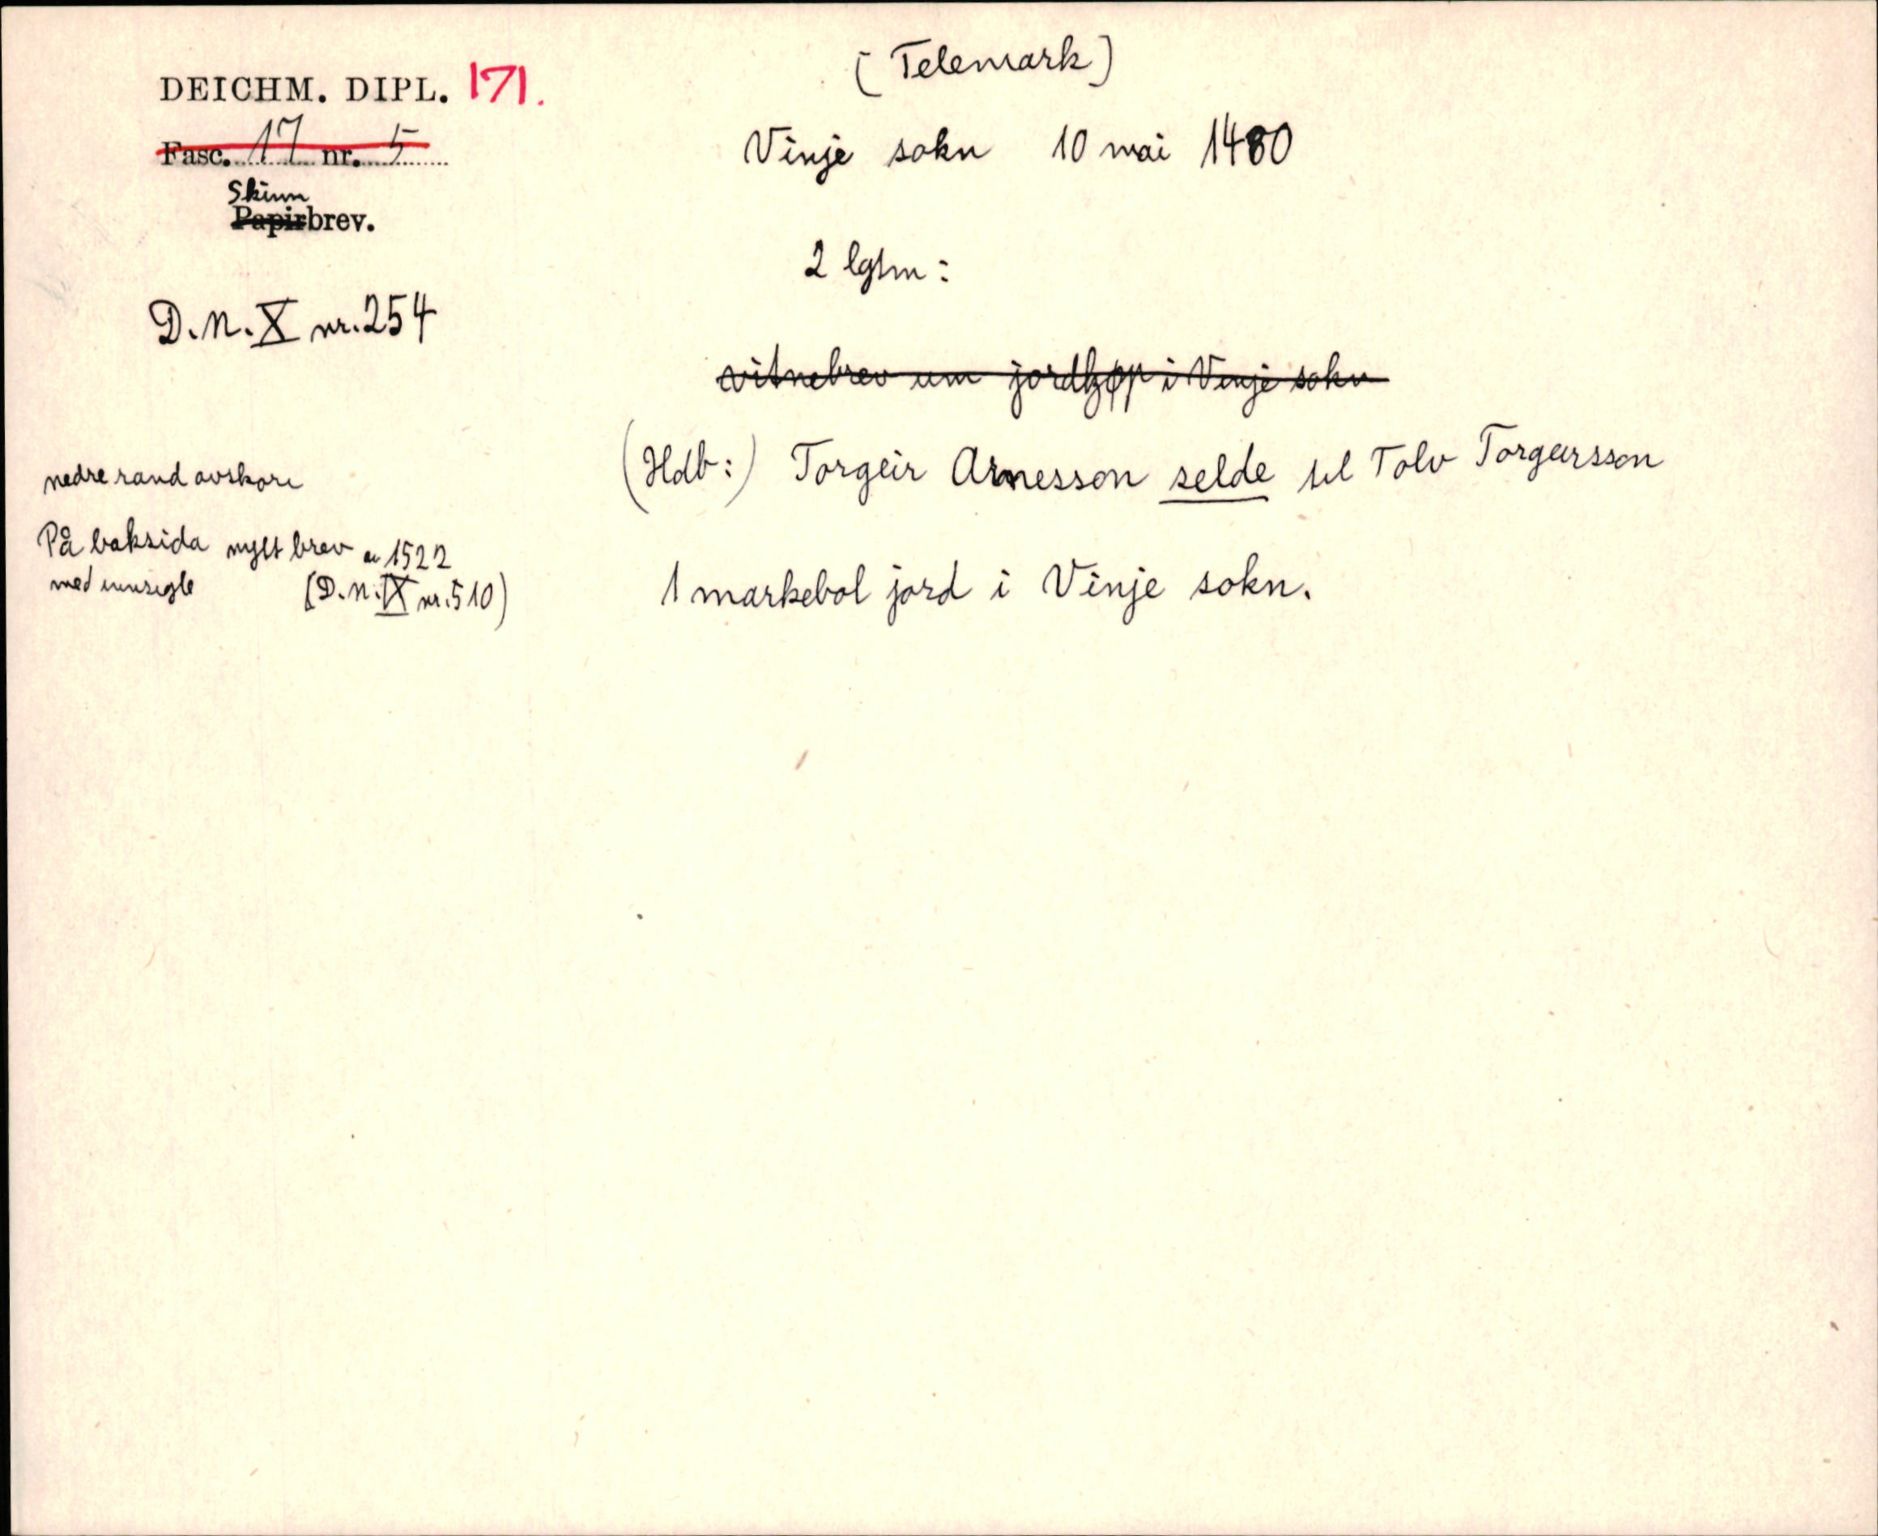 DEICHM. DIPL. 171.
Fasc. 17 nr. 5
Skinn
Papirbrev.
D.N. X nr. 254
nedre rand avskore
På baksida nytt brev av 1522
med innsigle (D.N. IX nr. 510)
[Telemark]
Vinje sokn 10 mai 1480
2 lgtm:
vitnebrev um jordkjøp i Vinje sokn
(Hdb:) Torgeir Arnesson selde til Tolv Torgeirsson
1 markebol jord i Vinje sokn.